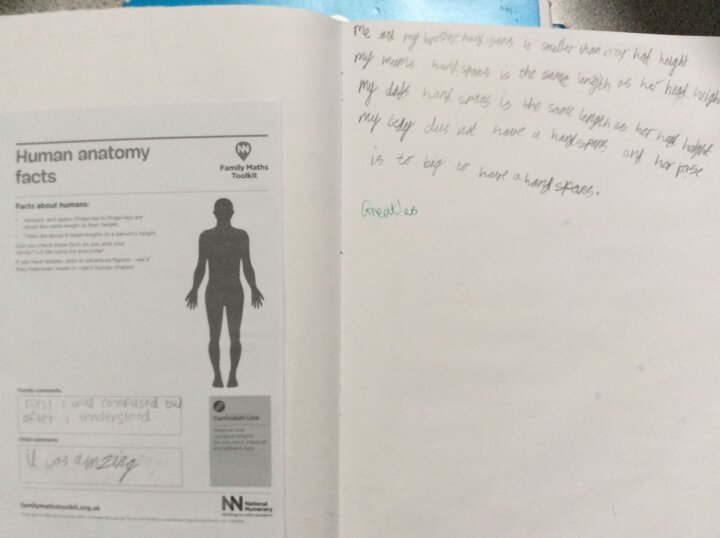 Human anatomy
facts
Family Maths
Toolkit
Facts about humans:
Humans' arm spans (fingertip to fingertip) are
about the same length as their height.
There are about 8 head lengths to a person's height.
Can you check these facts on you and your
family? Is it the same for everyone?
If you have teddies, dolls or adventure figures - see if
they have been made to match human shapes!
Family comments:
First i was confused but
after i understood.
Child comments:
it was amzing
Curriculum Link
Measure and
compare lengths
and present data
familymathstoolkit.org.uk
National
Numeracy
me and my brother hand spans is smaller than our head height
my mums hand spans is the same length as her head height
my dads hand spans is the same length as her head height
my dus not have a hand spans and her
is to big to have a hand spans.
Great